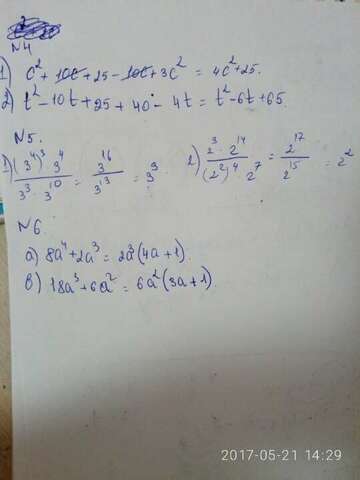 N4
1) c² + 10c + 25 - 10c + 3c² = 4c² + 25.
2) t² - 10t + 25 + 40 - 4t = t² - 6t + 65.
N5.
1) (3⁴)³ · 3⁴ / 3³ · 3¹⁰ = 3¹⁶ / 3¹³ = 3³ 2) 2³ · 2¹⁴ / (2²)⁴ · 2⁷ = 2¹⁷ / 2¹⁵ = 2²
N6.
а) 8a⁴ + 2a³ = 2a³(4a + 1).
в) 18a³ + 6a² = 6a²(3a + 1).
2017-05-21 14:29